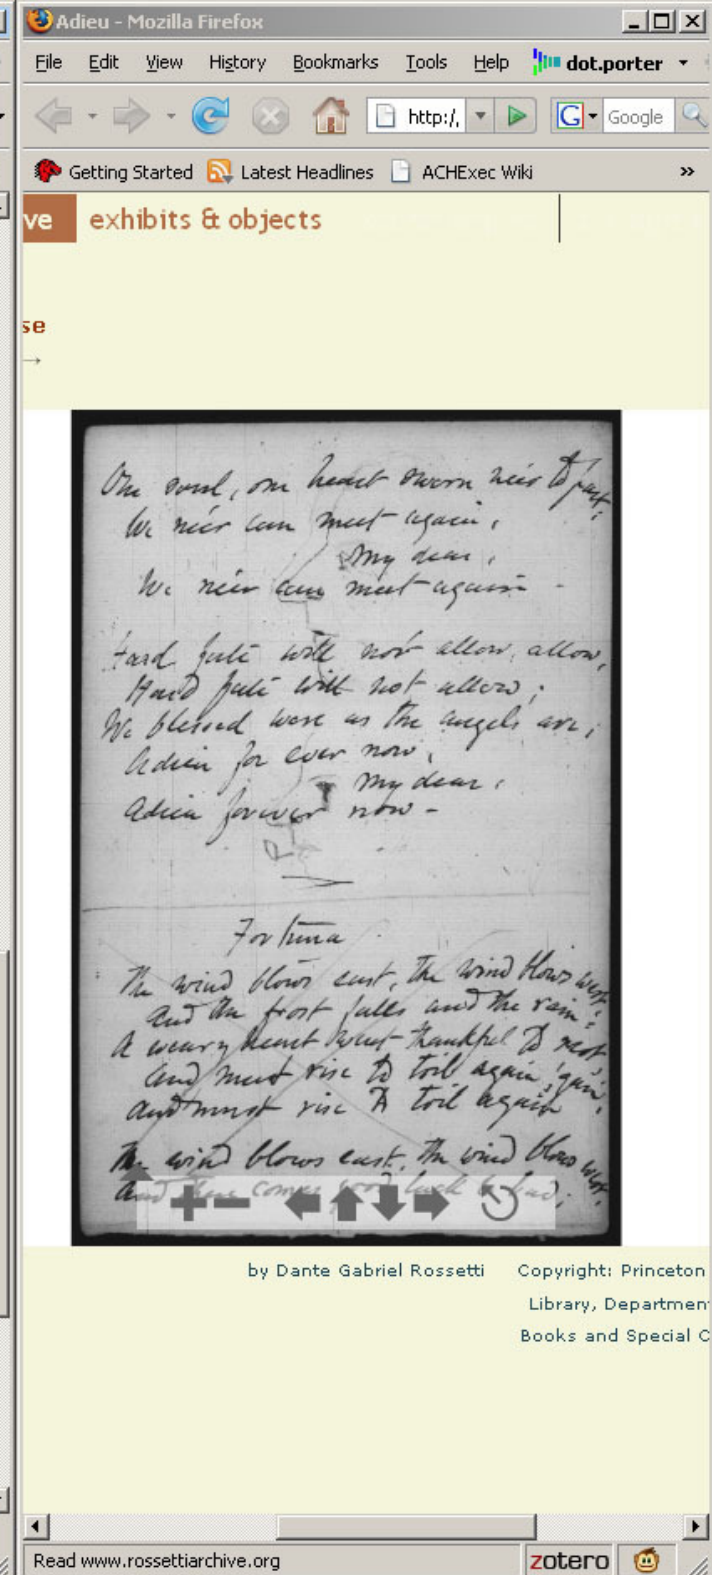 Adieu - Mozilla Firefox
File Edit View History Bookmarks Tools Help dot.porter
http:/, G Google
Getting Started Latest Headlines ACHExec Wiki »
ve exhibits & objects
se
→
One soul, one heart sworn ne'er to part,
We ne'er can meet again,
My dear,
We ne'er can meet again -
Hard fate will not allow, allow,
Hard fate will not allow;
We blessed were as the angels are;
Adieu for ever now,
My dear,
Adieu forever now -
Fortuna
The wind blows east, the wind blows west,
And the frost falls and the rain:
A weary heart went thankful to rest,
And must rise to toil again, 'gain,
And must rise to toil again
The wind blows east, the wind blows west,
And there comes good luck & bad;
by Dante Gabriel Rossetti Copyright: Princeton
Library, Departmen
Books and Special C
Read www.rossettiarchive.org zotero